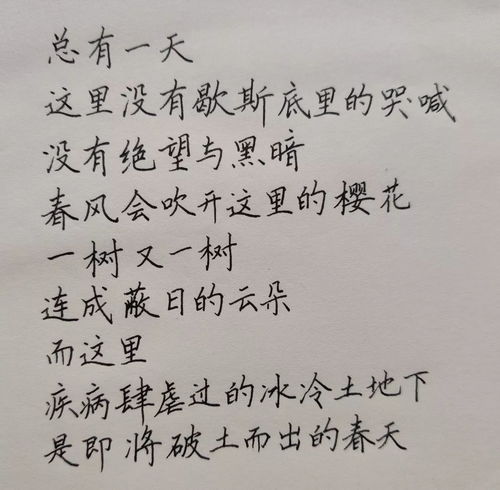 总有一天
这里没有歇斯底里的哭喊
没有绝望与黑暗
春风会吹开这里的樱花
一树又一树
连成蔽日的云朵
而这里
疾病肆虐过的冰冷土地下
是即将破土而出的春天